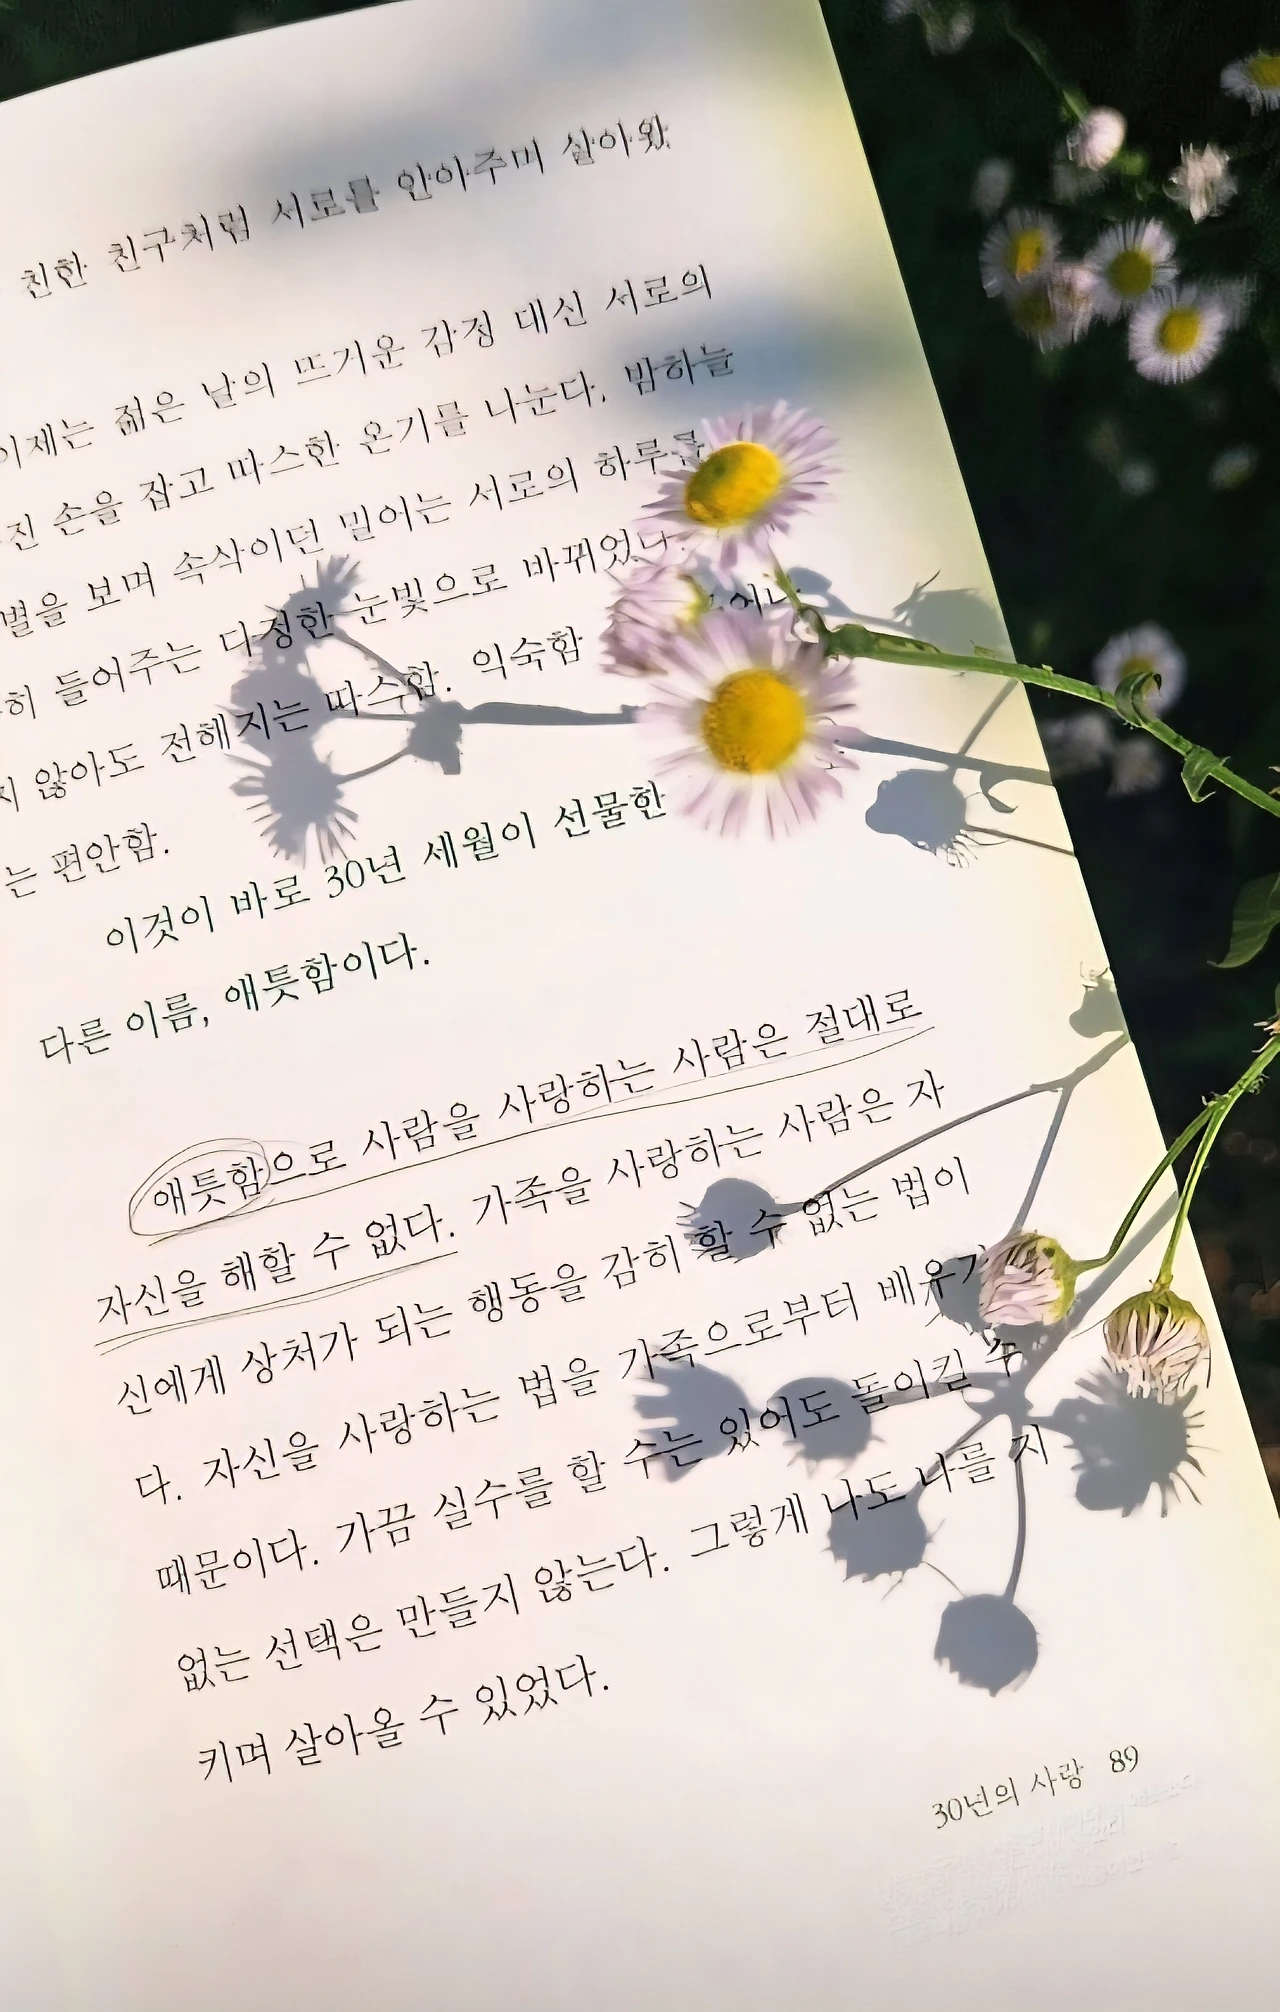 친한 친구처럼 서로를 안아주며 살아왔
이제는 젊은 날의 뜨거운 감정 대신 서로의
진 손을 잡고 따스한 온기를 나눈다. 밤하늘
별을 보며 속삭이던 밀어는 서로의 하루를
히 들어주는 다정한 눈빛으로 바뀌었다.
지 않아도 전해지는 따스함. 익숙함
는 편안함.
이것이 바로 30년 세월이 선물한
다른 이름, 애틋함이다.
애틋함으로 사람을 사랑하는 사람은 절대로
자신을 해할 수 없다. 가족을 사랑하는 사람은 자
신에게 상처가 되는 행동을 감히 할 수 없는 법이
다. 자신을 사랑하는 법을 가족으로부터 배우기
때문이다. 가끔 실수를 할 수는 있어도 돌이킬 수
없는 선택은 만들지 않는다. 그렇게 나도 나를 지
키며 살아올 수 있었다.
30년의 사랑 89